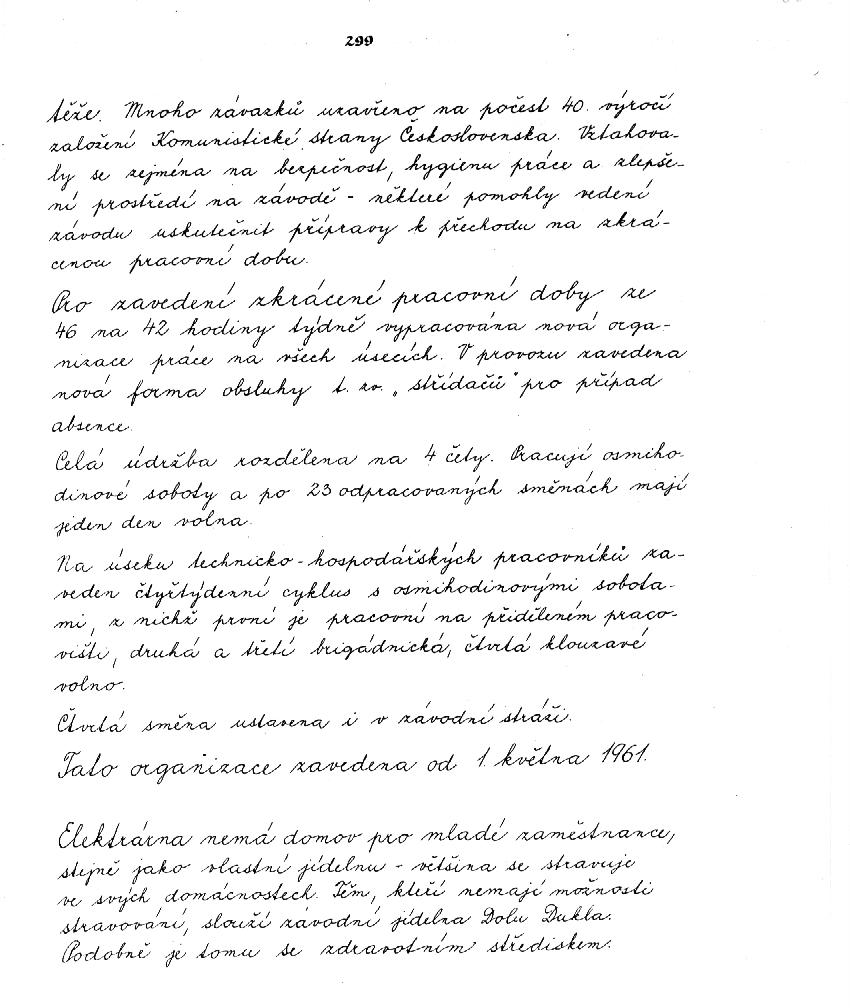 299
těže. Mnoho závazků uzavřeno na počest 40. výročí
založení Komunistické strany Československa. Vztahova-
ly se zejména na bezpečnost, hygienu práce a zlepše-
ní prostředí na závodě - některé pomohly vedení
závodu uskutečnit přípravy k přechodu na zkrá-
cenou pracovní dobu.
Pro zavedení zkrácené pracovní doby ze
46 na 42 hodiny týdně vypracována nová orga-
nizace práce na všech úsecích. V provozu zavedena
nová forma obsluhy t. zv. „střídačů" pro případ
absence.
Celá údržba rozdělena na 4 čety. Pracují osmiho-
dinové soboty a po 23 odpracovaných směnách mají
jeden den volna.
Na úseku technicko-hospodářských pracovníků za-
veden čtyřtýdenní cyklus s osmihodinovými sobota-
mi, z nichž první je pracovní na přiděleném praco-
višti, druhá a třetí brigádnická, čtvrtá klouzavé
volno.
Čtvrtá směna ustavena i v závodní stráži.
Tato organizace zavedena od 1. května 1961.
Elektrárna nemá domov pro mladé zaměstnance,
stejně jako vlastní jídelnu - většina se stravuje
ve svých domácnostech. Těm, kteří nemají možnosti
stravování, slouží závodní jídelna Dolu Dukla.
Podobně je tomu se zdravotním střediskem.